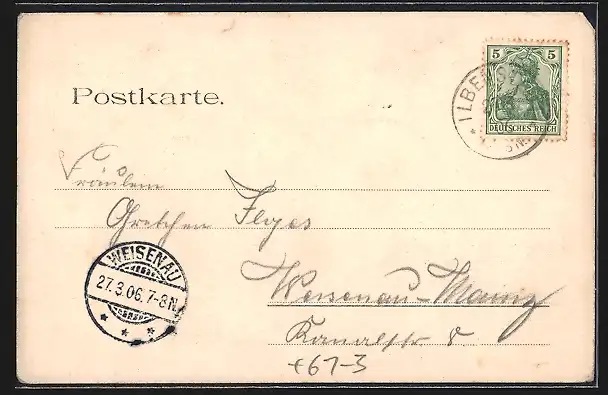 Postkarte.
5 5
DEUTSCHES REICH
* ILBE
Fräulein
Gretchen
WEISENAU
27.3.06.7-8N.
* * *
Weisenau-Mainz
Kanalstr 8
+67-3